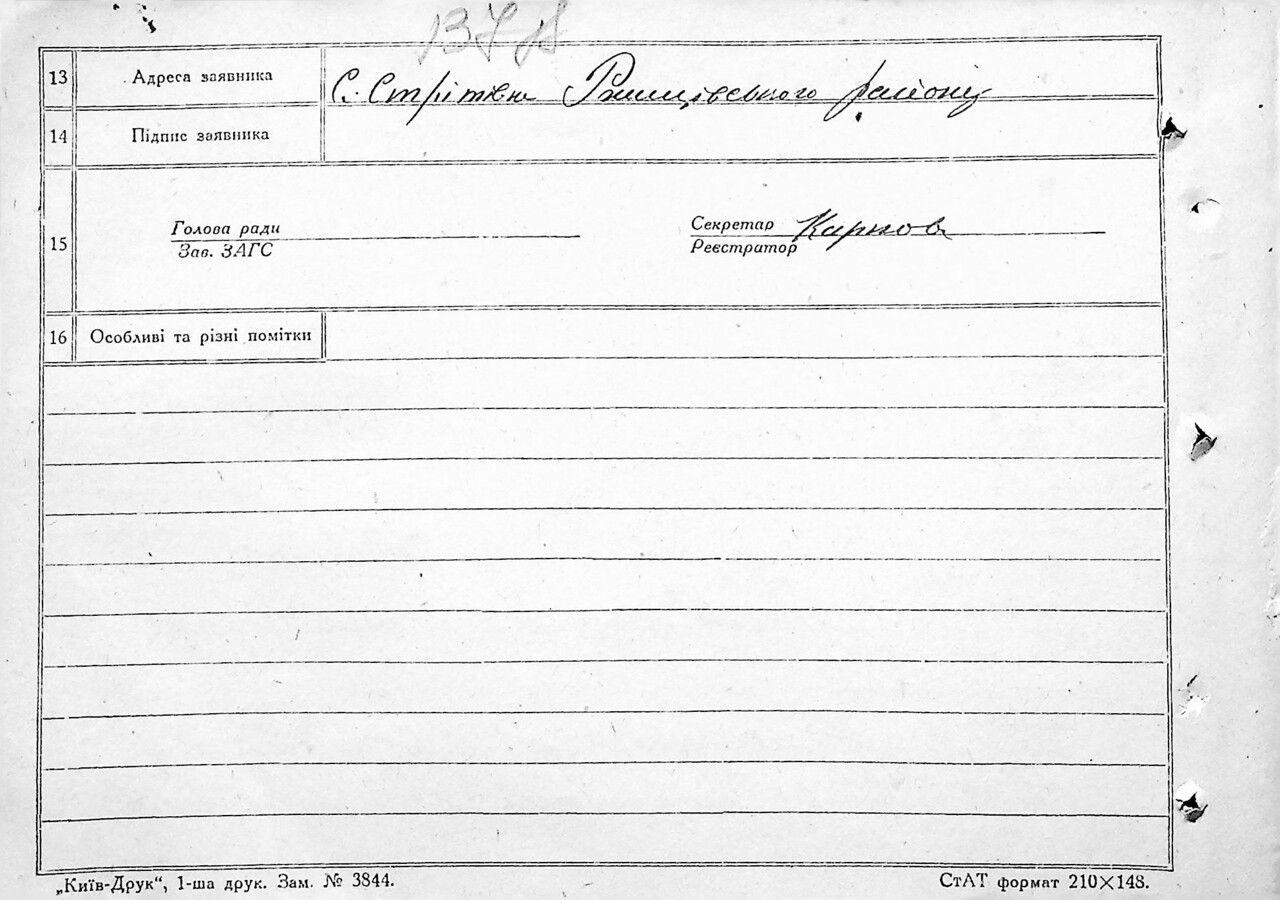 13 Адреса заявника С. Стрітівка Ржищівського району
14 Підпис заявника
15 Голова ради Секретар Карпов
Зав. ЗАГС Реєстратор
16 Особливі та різні помітки
„Київ-Друк“, 1-ша друк. Зам. № 3844. СтАТ формат 210×148.